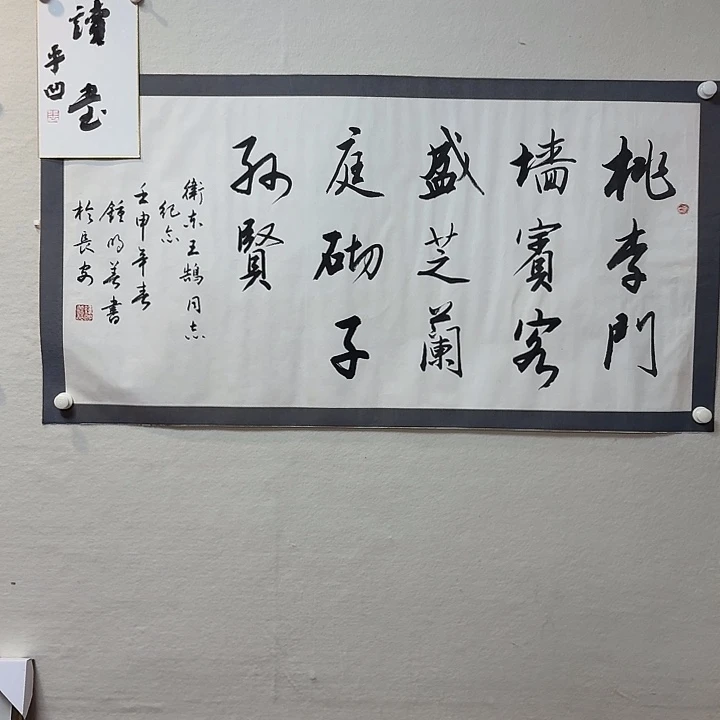 桃李門
墙賓客
盛芝蘭
庭砌子
孙賢
衛东王鵠同志
纪念
壬申年春
鍾明善書
於長安
讀書
平凹